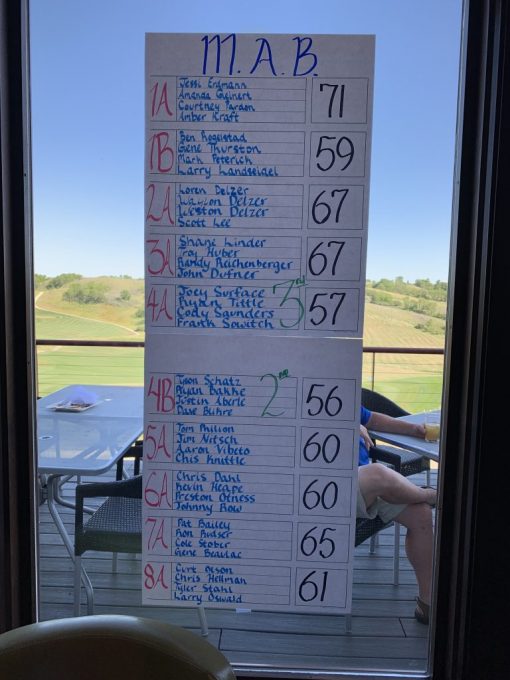 M.A.B.
1A
Jessi Erdmann
Amanda
Courtney Pardon
Amber Kraft
71
1B
Ben Rogelstad
Gene Thurston
Mark Peterich
Larry Landseidel
59
2A
Loren Delzer
Waylon Delzer
Weston Delzer
Scott Lee
67
3A
Shane Linder
Troy Huber
Randy Reichenberger
John Dufner
67
4A
Joey Surface
Ryan Tittle
Cody Saunders
Frank Sowitch
3rd
57
4B
Tyson Schatz
Ryan Bakke
Justin Aberle
Dave Buhre
2nd
56
5A
Tom Philion
Jim Nitsch
Aaron Vibeto
Chis Knuttle
60
6A
Chris Dahl
Kevin Heape
Preston Oeness
Johnny Row
60
7A
Pat Bailey
Ron Rudser
Cole Stober
Gene Beaulac
65
8A
Curt Olson
Chris Hellman
Tyler Stahl
Larry Oswald
61